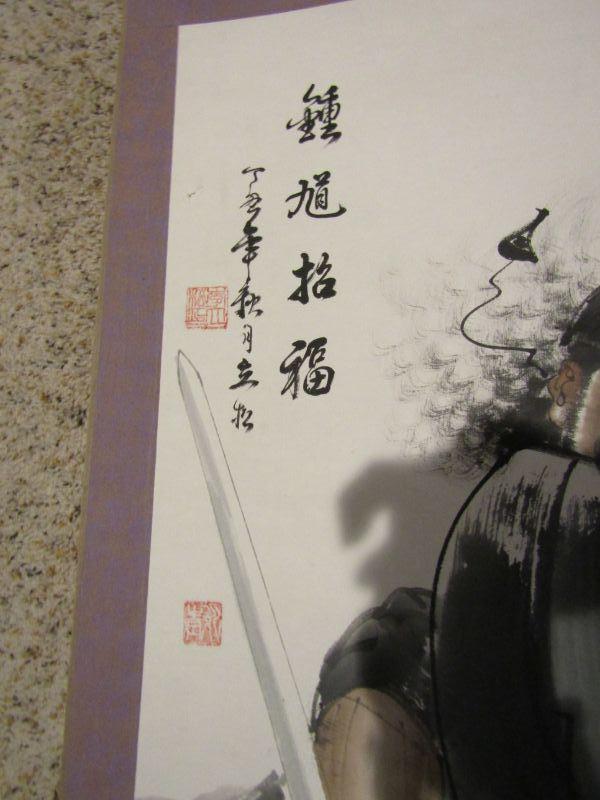 鍾馗招福
丁丑年秋月立松